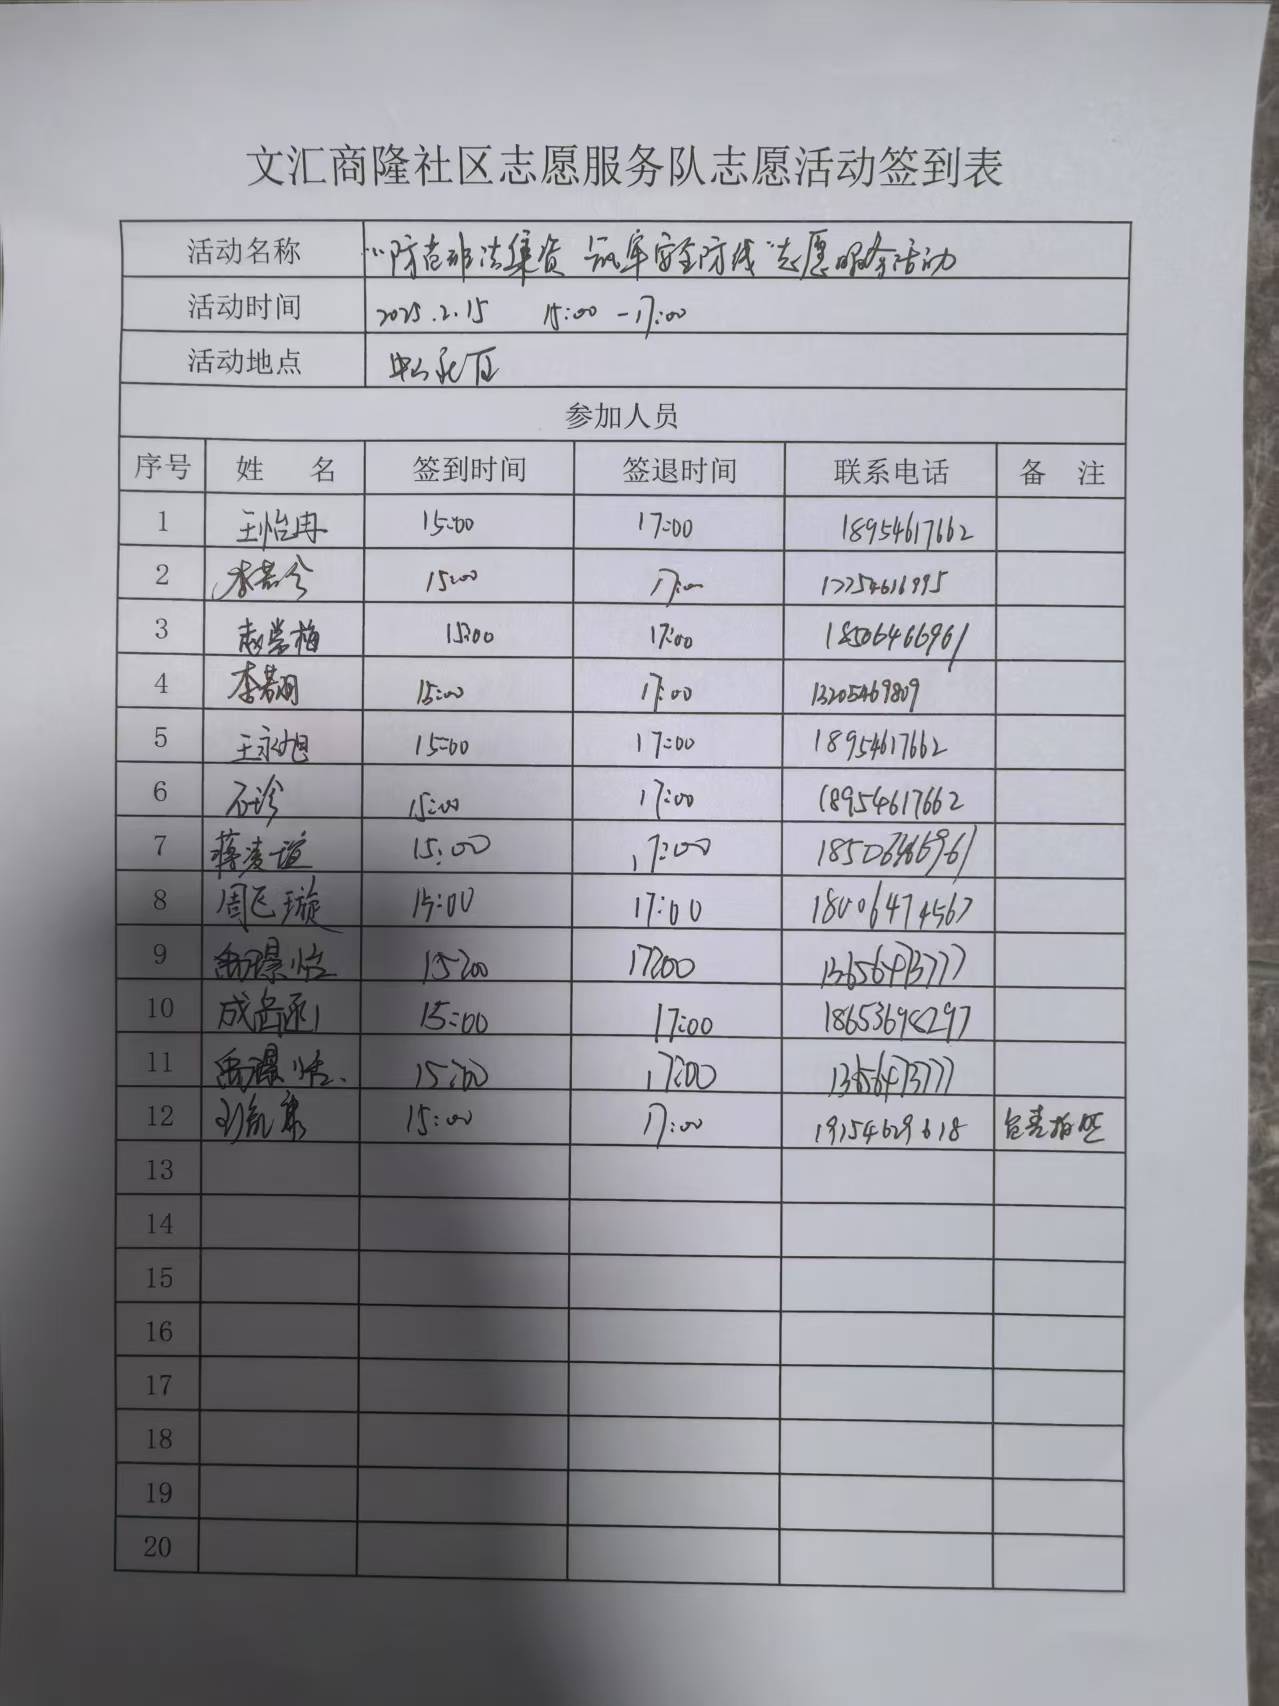 文汇商隆社区志愿服务队志愿活动签到表
活动名称 “防范非法集资 筑牢安全防线”志愿服务活动
活动时间 2025.2.15 15:00-17:00
活动地点
参加人员
序号 姓 名 签到时间 签退时间 联系电话 备 注
1 王怡冉 15:00 17:00 18954617662
2 李若兮 15:00 17:00
3 赵崇梅 15:00 17:00 18506466961
4 李若翔 15:00 17:00 13205469809
5 王永旭 15:00 17:00 18954617662
6 石珍 15:00 17:00 18954617662
7 蒋凌瑄 15:00 17:00
8 周飞璇 15:00 17:00 18006474567
9 15:00 17:00
10 15:00 17:00
11 15:00 17:00
12 15:00 17:00 19154629618
13
14
15
16
17
18
19
20